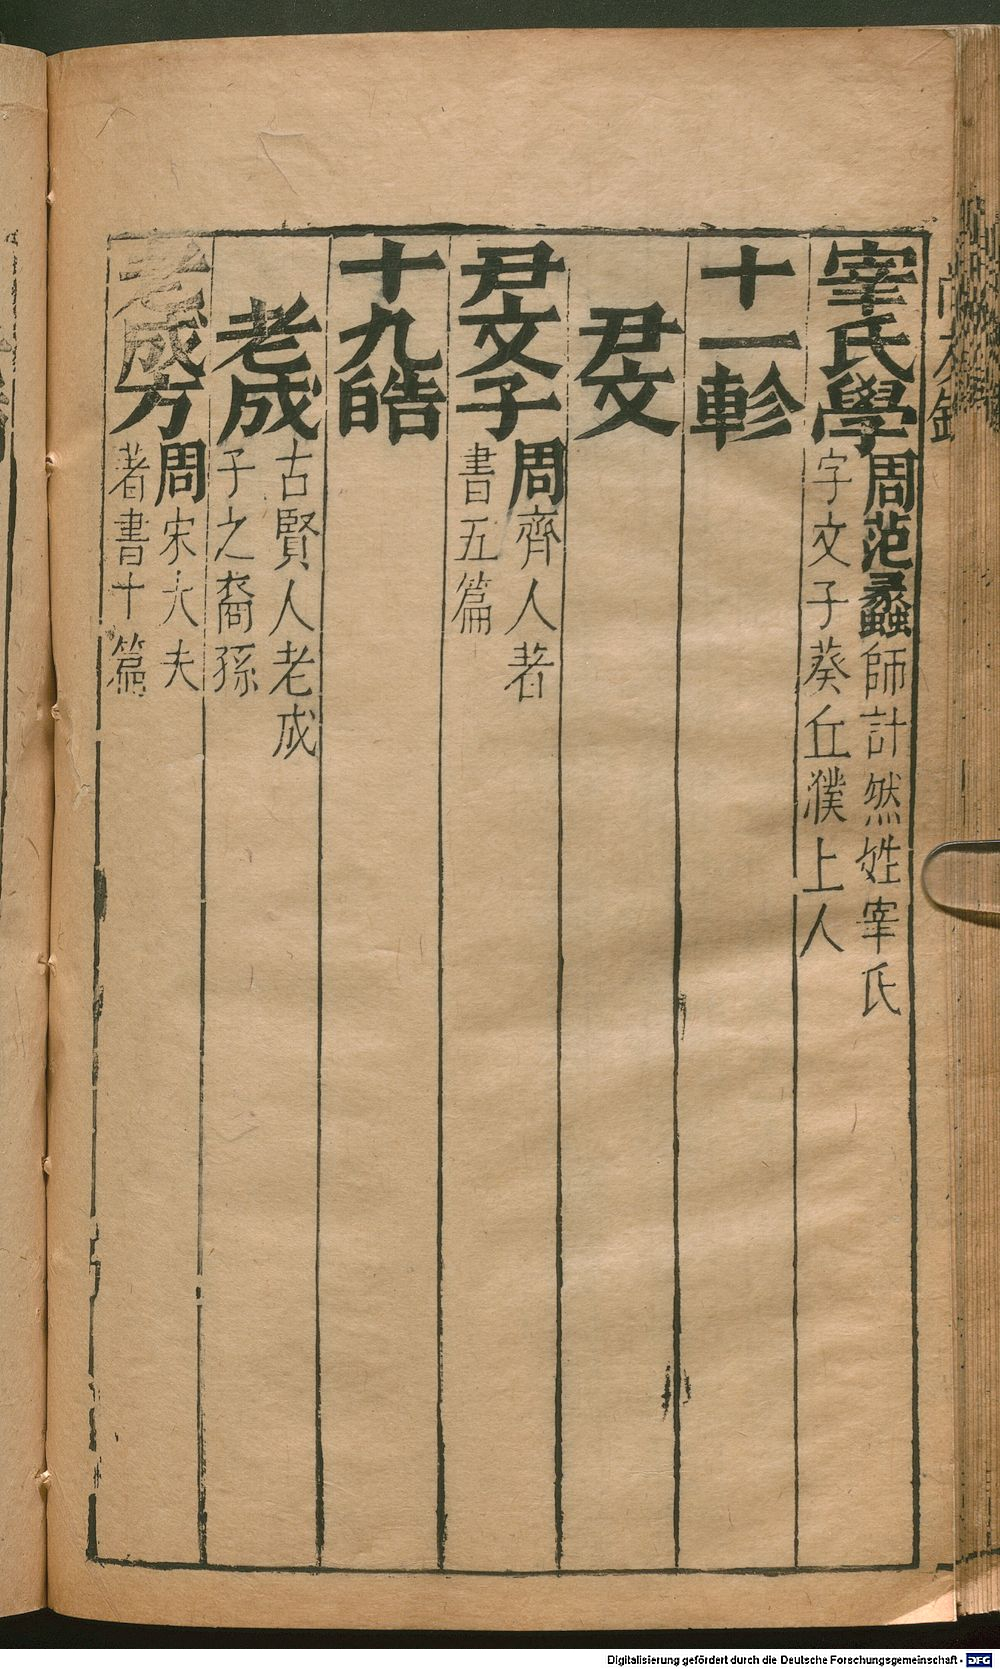 宰氏學周范蠡師計然姓宰氏
字文子葵丘濮上人
十一軫
君文
尹文子周齊人著
書五篇
十九皓
老成古賢人老成
子之裔孫
老成方周宋大夫
著書十篇
Digitalisierung gefördert durch die Deutsche Forschungsgemeinschaft - DFG